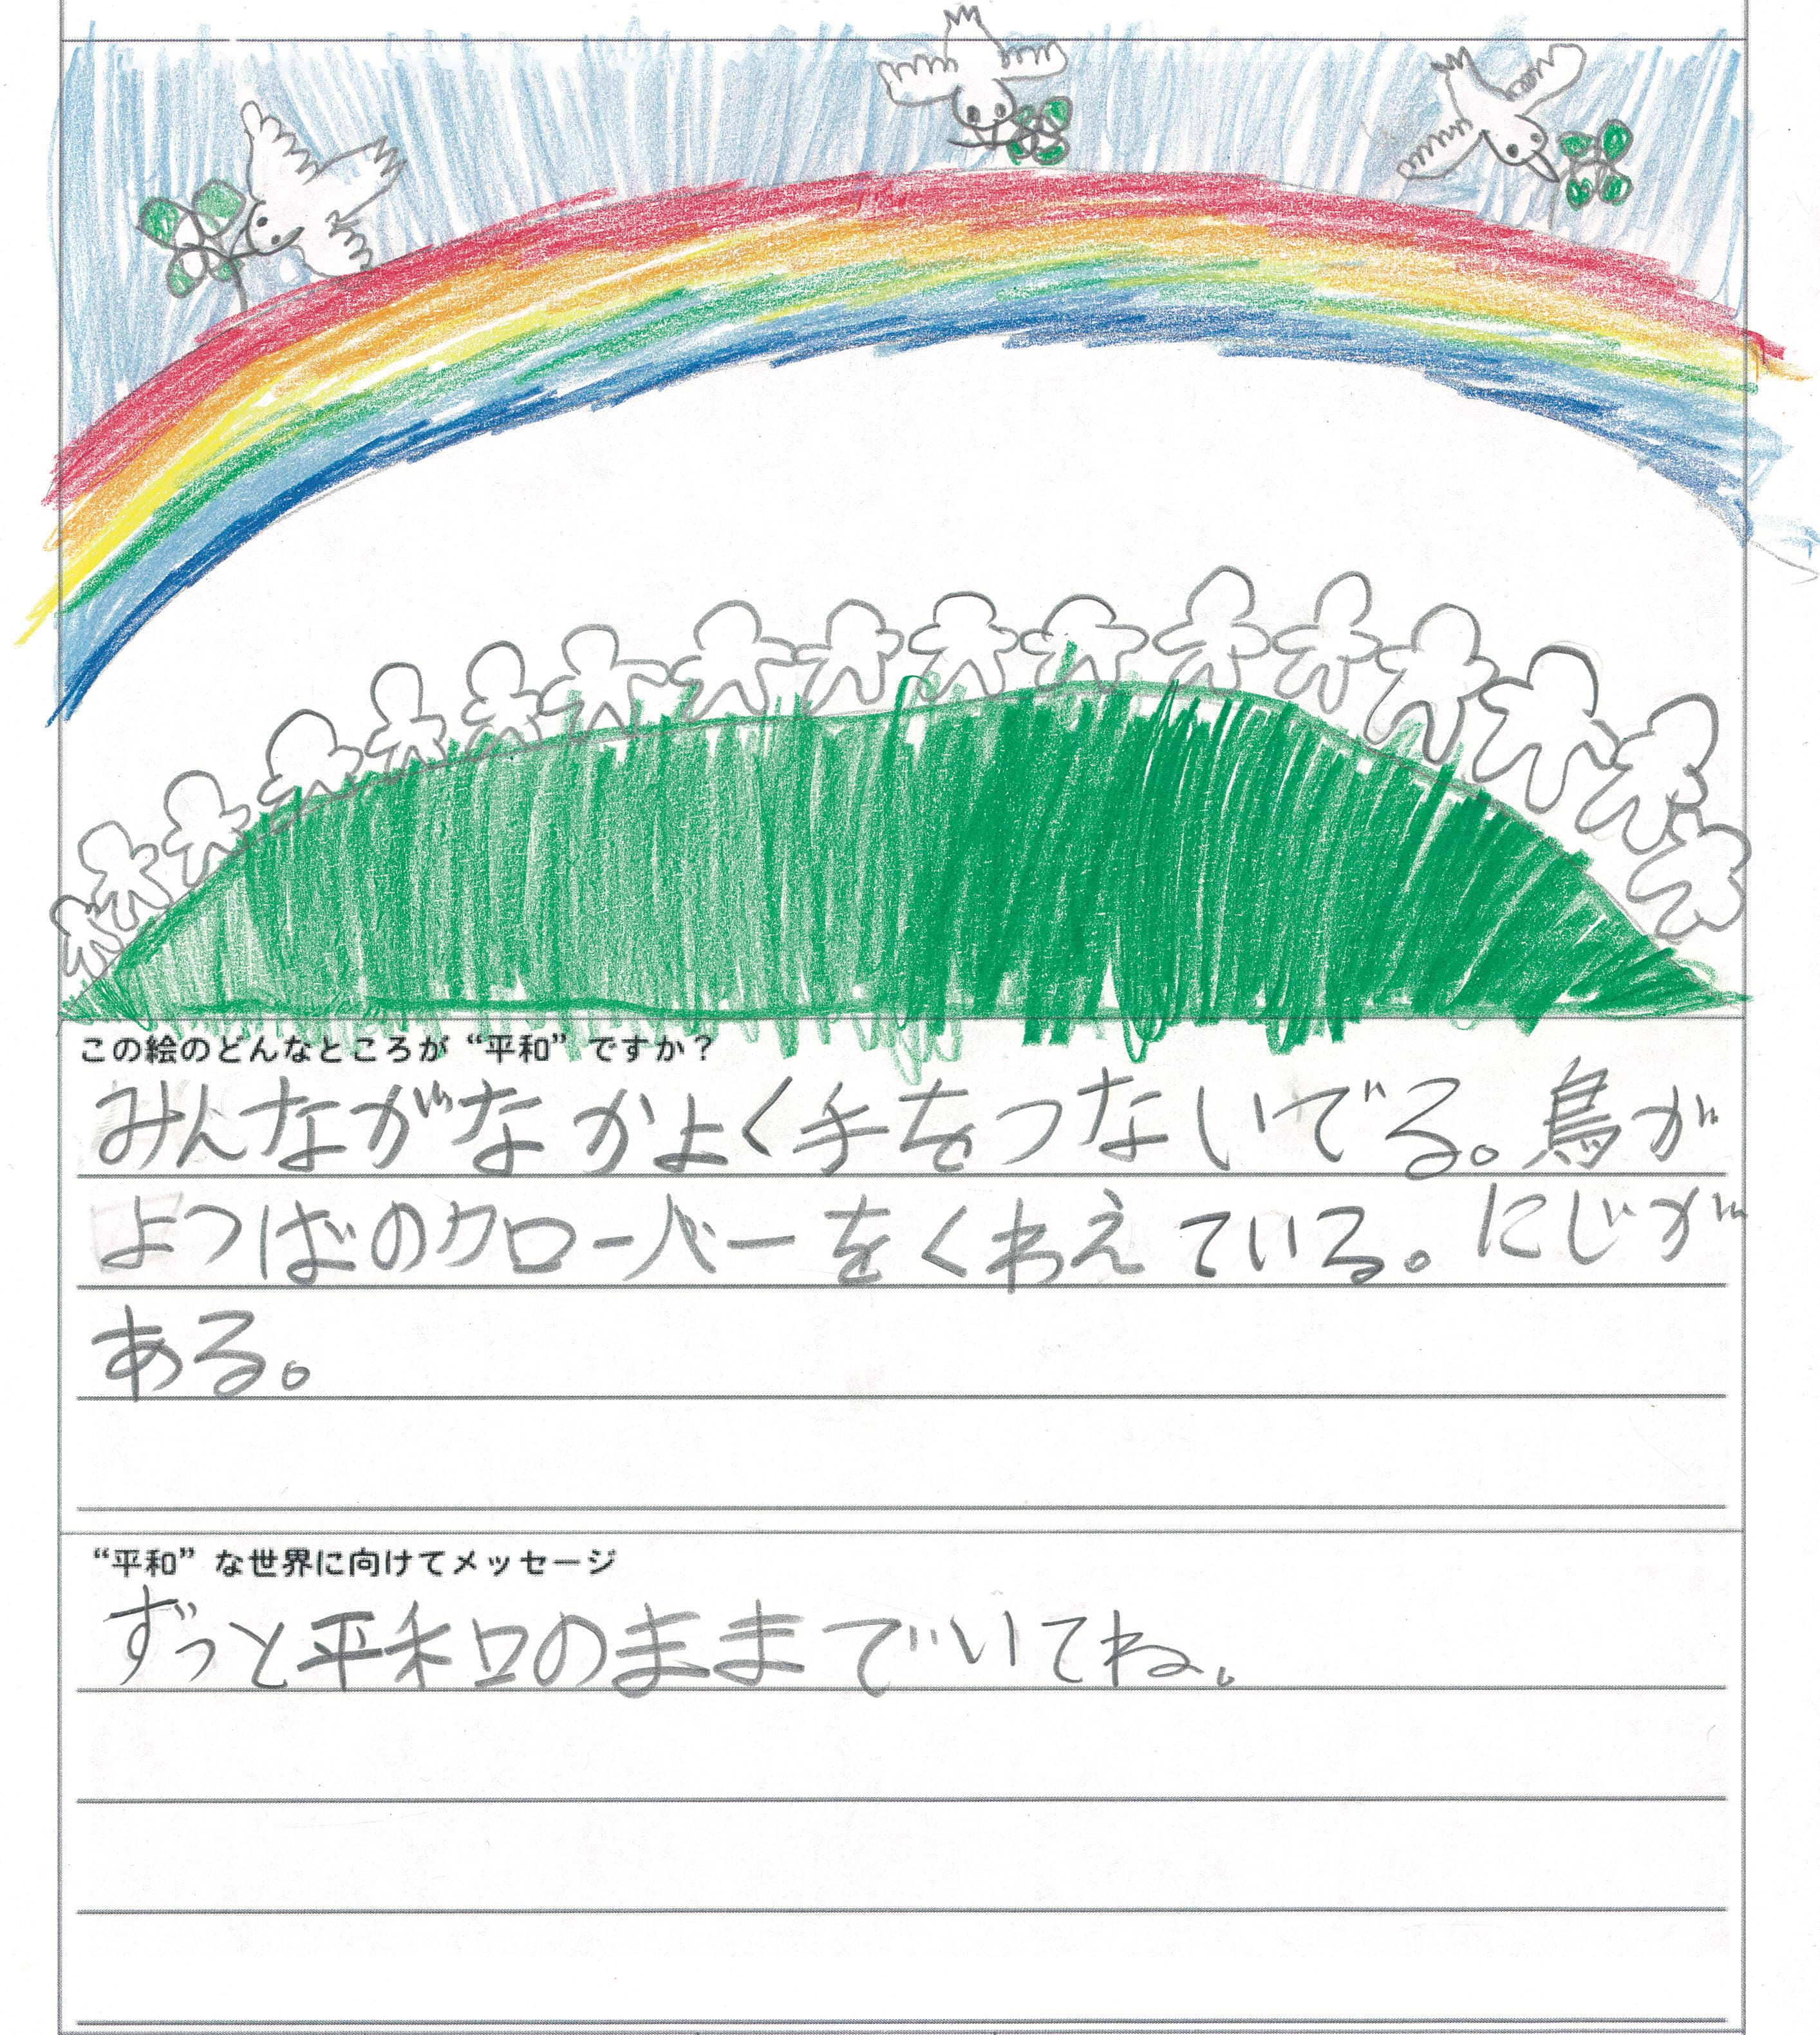 この絵のどんなところが“平和”ですか？
みんながなかよく手をつないでる。鳥が
よつばのクローバーをくわえている。にじが
ある。
“平和”な世界に向けてメッセージ
ずっと平和のままでいてね。